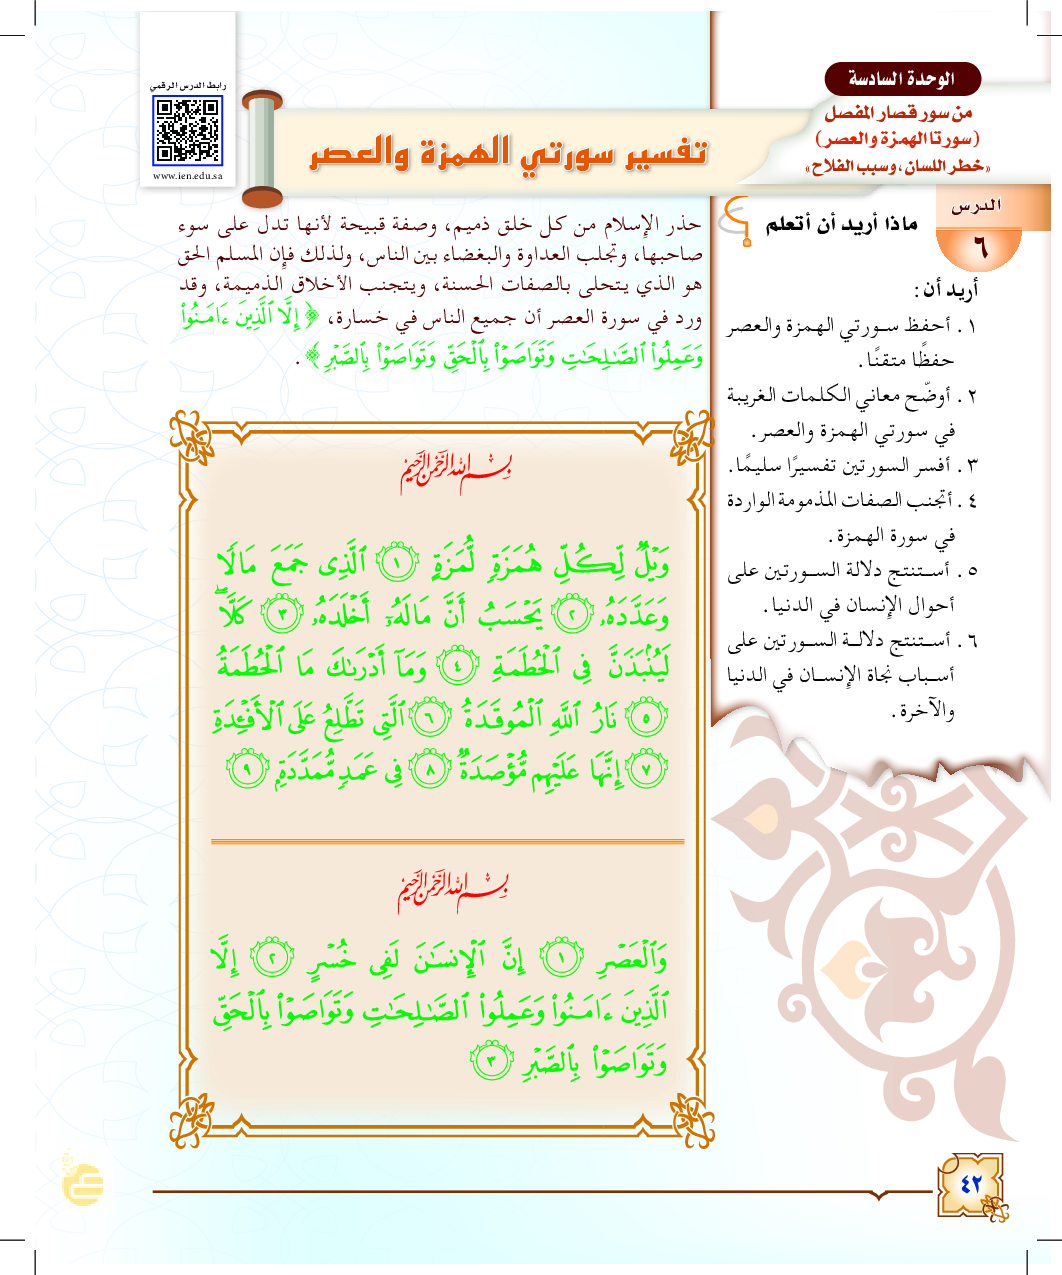 الوحدة السادسة
من سور قصار المفصل
(سورتا الهمزة والعصر)
«خطر اللسان، وسبب الفلاح»
رابط الدرس الرقمي
www.ien.edu.sa
تفسير سورتي الهمزة والعصر
الدرس
٦
ماذا أريد أن أتعلم
أريد أن:
١. أحفظ سورتي الهمزة والعصر
حفظًا متقنًا.
٢. أوضّح معاني الكلمات الغريبة
في سورتي الهمزة والعصر.
٣. أفسر السورتين تفسيرًا سليمًا.
٤. أتجنب الصفات المذمومة الواردة
في سورة الهمزة.
٥. أستنتج دلالة السورتين على
أحوال الإنسان في الدنيا.
٦. أستنتج دلالة السورتين على
أسباب نجاة الإنسان في الدنيا
والآخرة.
حذر الإسلام من كل خلق ذميم، وصفة قبيحة لأنها تدل على سوء
صاحبها، وتجلب العداوة والبغضاء بين الناس، ولذلك فإن المسلم الحق
هو الذي يتحلى بالصفات الحسنة، ويتجنب الأخلاق الذميمة، وقد
ورد في سورة العصر أن جميع الناس في خسارة، ﴿ إِلَّا ٱلَّذِينَ ءَامَنُوا۟
وَعَمِلُوا۟ ٱلصَّـٰلِحَـٰتِ وَتَوَاصَوْا۟ بِٱلْحَقِّ وَتَوَاصَوْا۟ بِٱلصَّبْرِ ﴾.
بِسْمِ ٱللَّهِ ٱلرَّحْمَـٰنِ ٱلرَّحِيمِ
وَيْلٌ لِّكُلِّ هُمَزَةٍ لُّمَزَةٍ ١ ٱلَّذِى جَمَعَ مَالًا
وَعَدَّدَهُۥ ٢ يَحْسَبُ أَنَّ مَالَهُۥٓ أَخْلَدَهُۥ ٣ كَلَّا ۖ
لَيُنۢبَذَنَّ فِى ٱلْحُطَمَةِ ٤ وَمَآ أَدْرَىٰكَ مَا ٱلْحُطَمَةُ
٥ نَارُ ٱللَّهِ ٱلْمُوقَدَةُ ٦ ٱلَّتِى تَطَّلِعُ عَلَى ٱلْأَفْـِٔدَةِ
٧ إِنَّهَا عَلَيْهِم مُّؤْصَدَةٌ ٨ فِى عَمَدٍ مُّمَدَّدَةٍ ٩
بِسْمِ ٱللَّهِ ٱلرَّحْمَـٰنِ ٱلرَّحِيمِ
وَٱلْعَصْرِ ١ إِنَّ ٱلْإِنسَـٰنَ لَفِى خُسْرٍ ٢ إِلَّا
ٱلَّذِينَ ءَامَنُوا۟ وَعَمِلُوا۟ ٱلصَّـٰلِحَـٰتِ وَتَوَاصَوْا۟ بِٱلْحَقِّ
وَتَوَاصَوْا۟ بِٱلصَّبْرِ ٣
٤٢